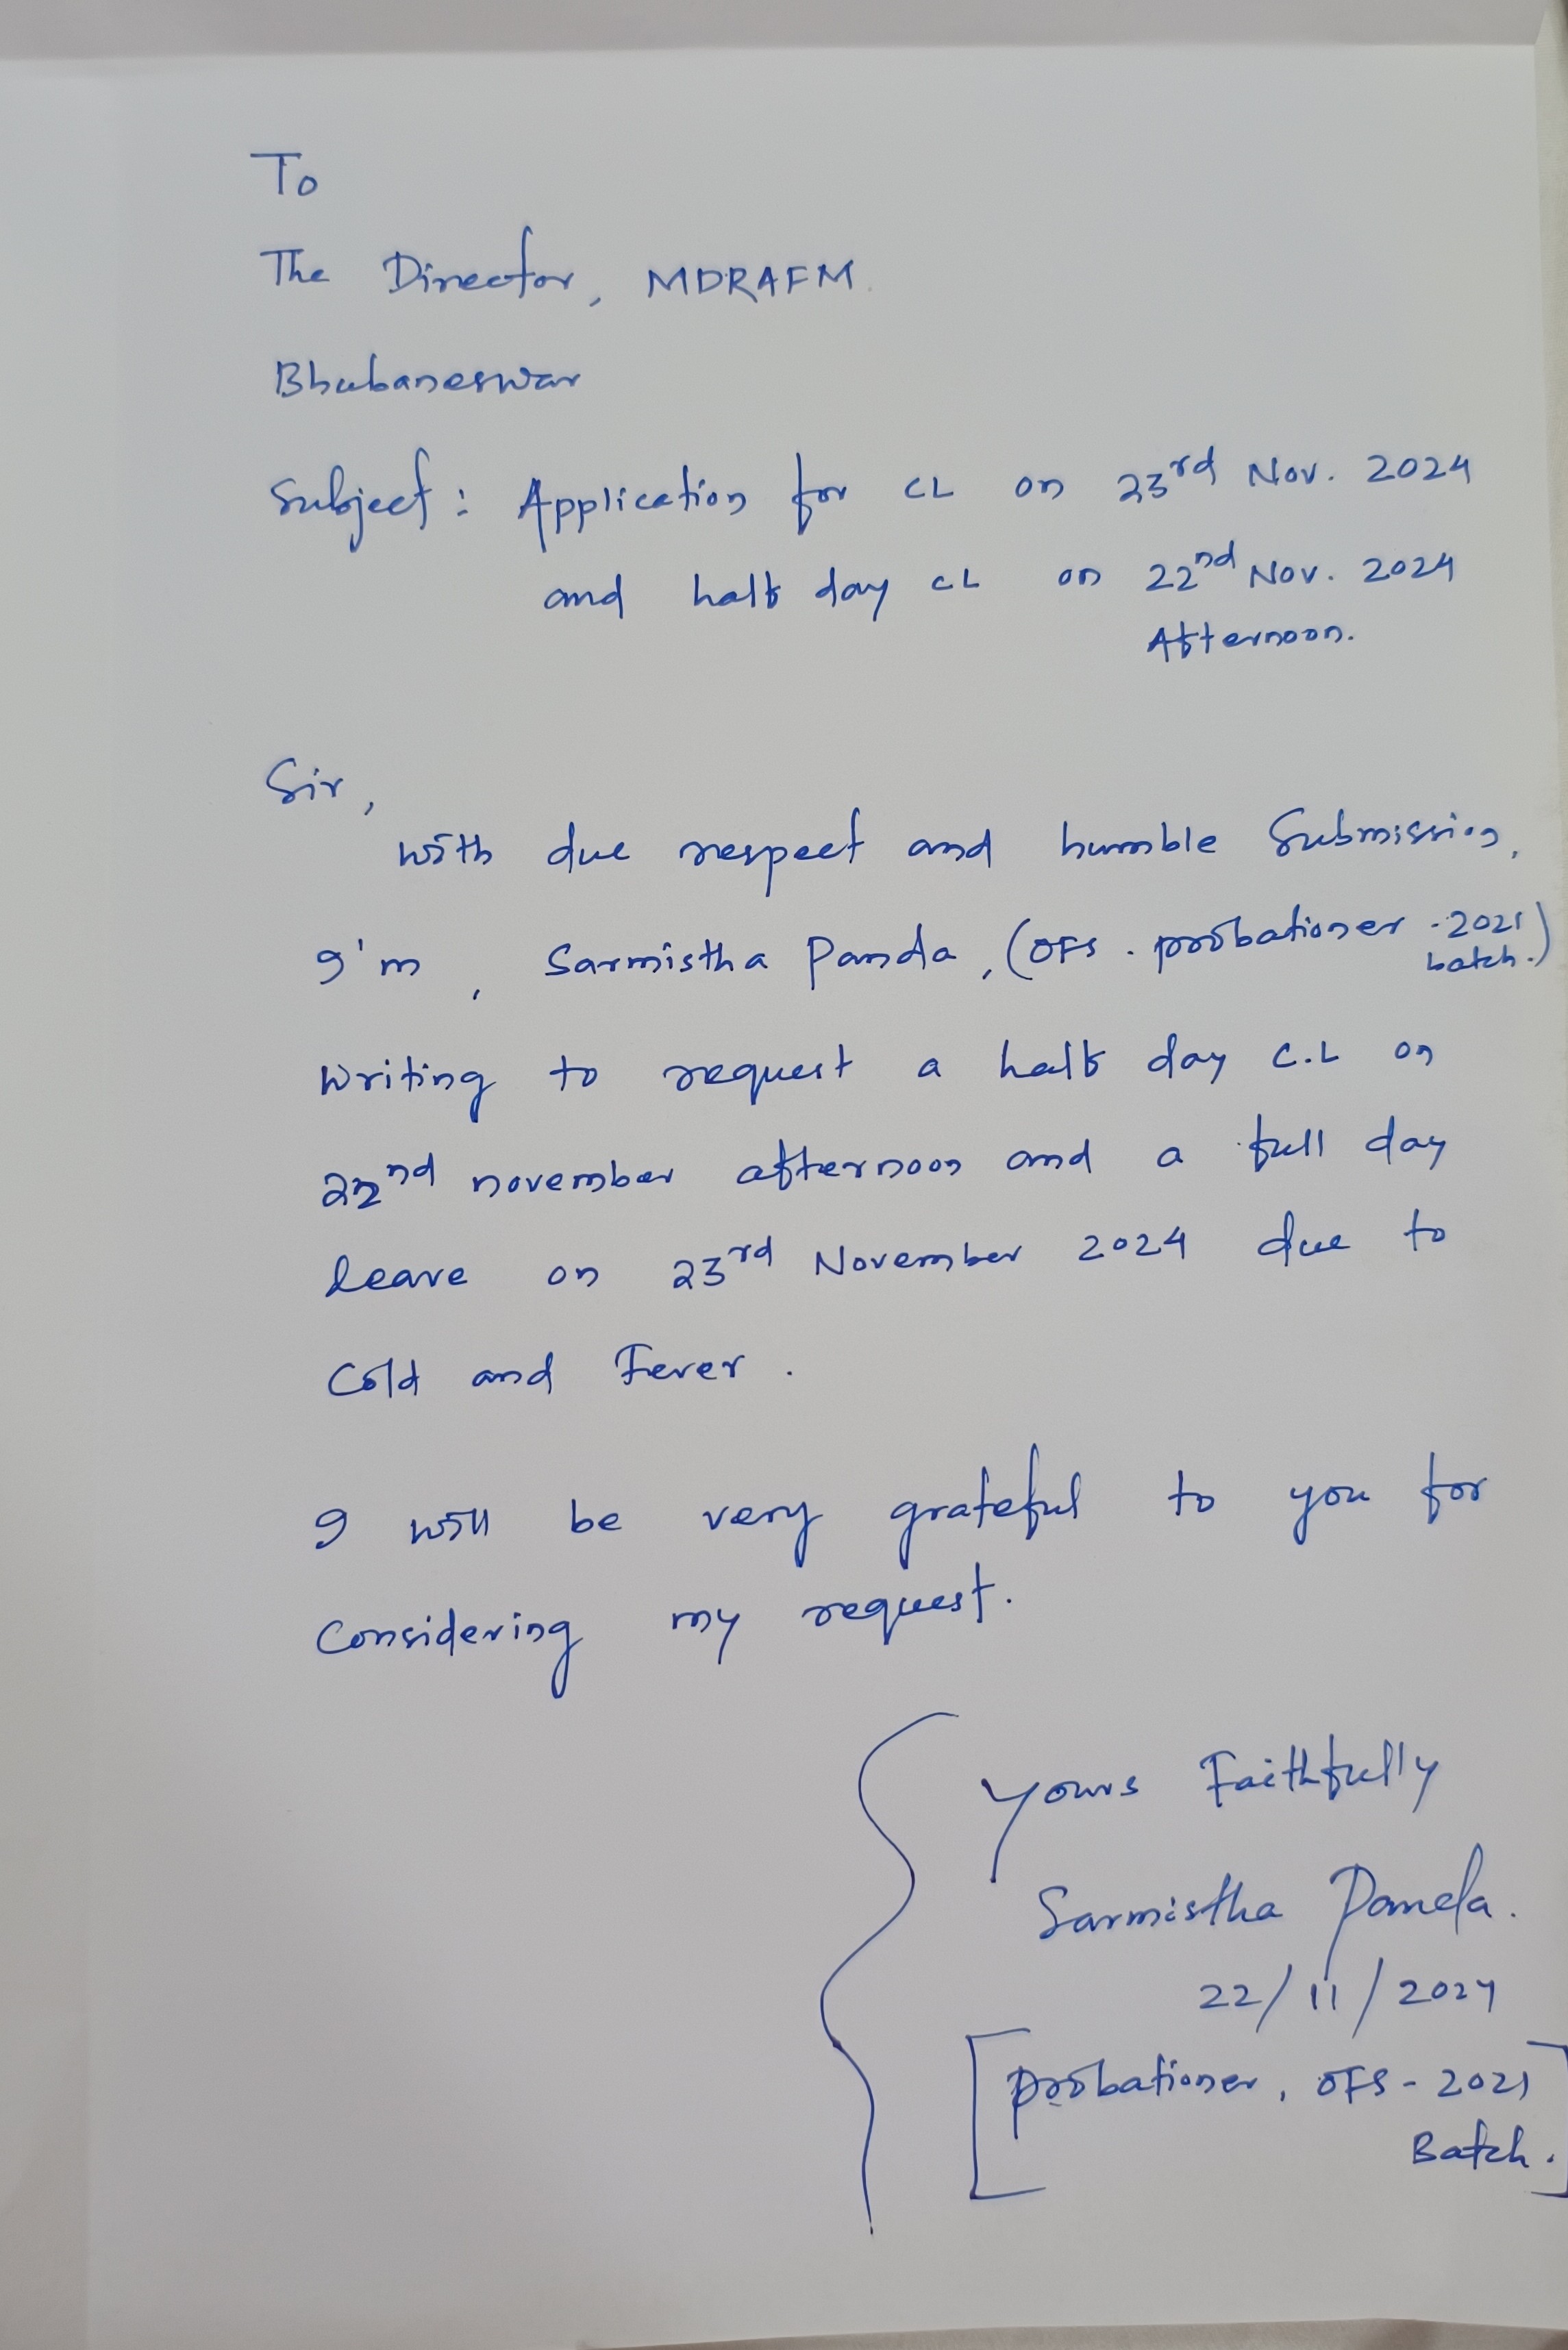 To
The Director, MDRAFM.
Bhubaneswar
Subject : Application for CL on 23rd Nov. 2024
and half day CL on 22nd Nov. 2024
Afternoon.
Sir,
With due respect and humble Submission,
I'm, Sarmistha Panda, (OFS. probationer -2021
batch.)
Writing to request a half day C.L on
22nd november afternoon and a full day
leave on 23rd November 2024 due to
Cold and Fever.
I will be very grateful to you for
Considering my request.
Yours Faithfully
Sarmistha Panda.
22/11/2024
[Probationer, OFS - 2021
Batch.]